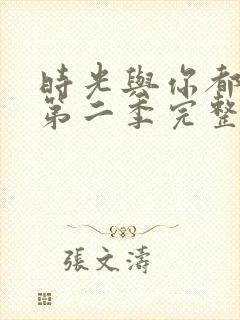 時光與你都
第二季完整
張文濤